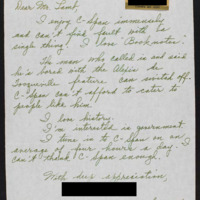 Dear Mr. Lamb,
I enjoy C-Span immensely
and can't find fault with a
single thing! I love "Booknotes".
The man who called in and said
he is bored with the Alexis de
Tocqueville feature can switch off.
C-Span can't afford to cater to
people like him.
I love history.
I'm interested in government.
I tune in to C-Span on an
average of four hours a day. I
can't thank C-Span enough.
With due appreciation,